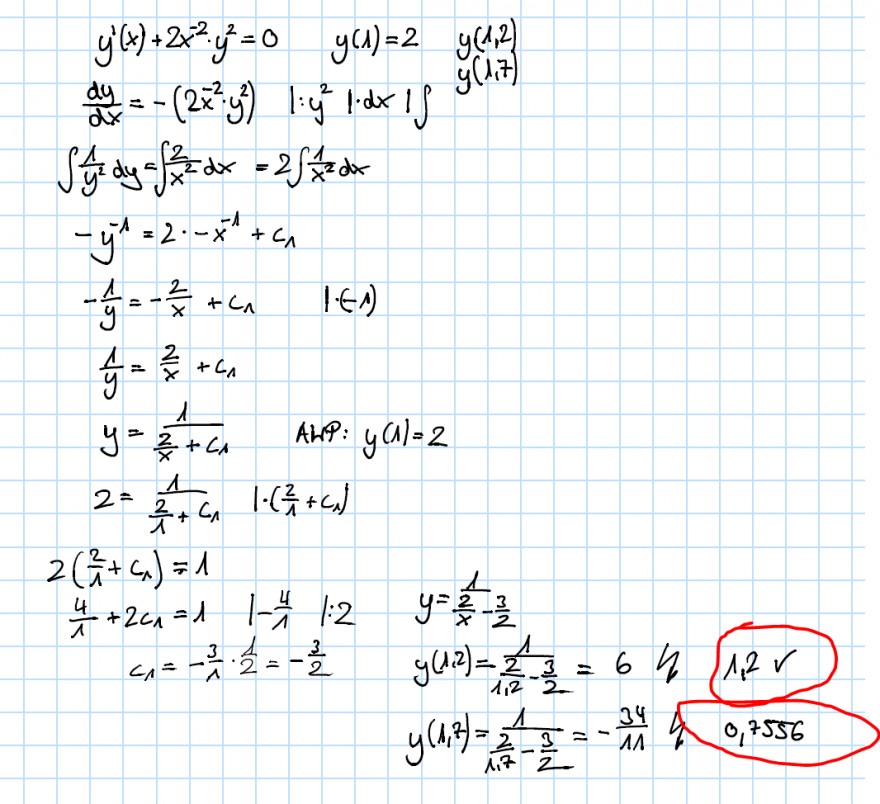 y'(x) + 2x⁻²·y² = 0 y(1) = 2 y(1,2)
y(1,7)
dy/dx = -(2x⁻²·y²) |:y² |·dx |∫
∫ 1/y² dy = ∫ 2/x² dx = 2∫ 1/x² dx
-y⁻¹ = 2·-x⁻¹ + c₁
-1/y = -2/x + c₁ |·(-1)
1/y = 2/x + c₁
y = 1/(2/x + c₁) AWP: y(1) = 2
2 = 1/(2/1 + c₁) |·(2/1 + c₁)
2(2/1 + c₁) = 1
4/1 + 2c₁ = 1 |-4/1 |:2 y = 1/(2/x - 3/2)
c₁ = -3/1 · 1/2 = -3/2 y(1,2) = 1/(2/1,2 - 3/2) = 6 ↯ 1,2 ✓
y(1,7) = 1/(2/1,7 - 3/2) = -34/11 ↯ 0,7556